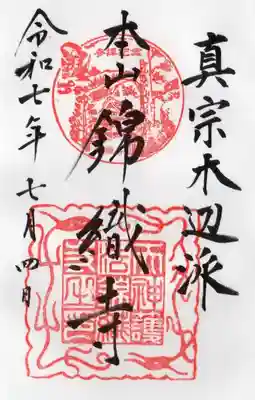 真宗木辺派
本山錦織寺
令和七年 七月四日